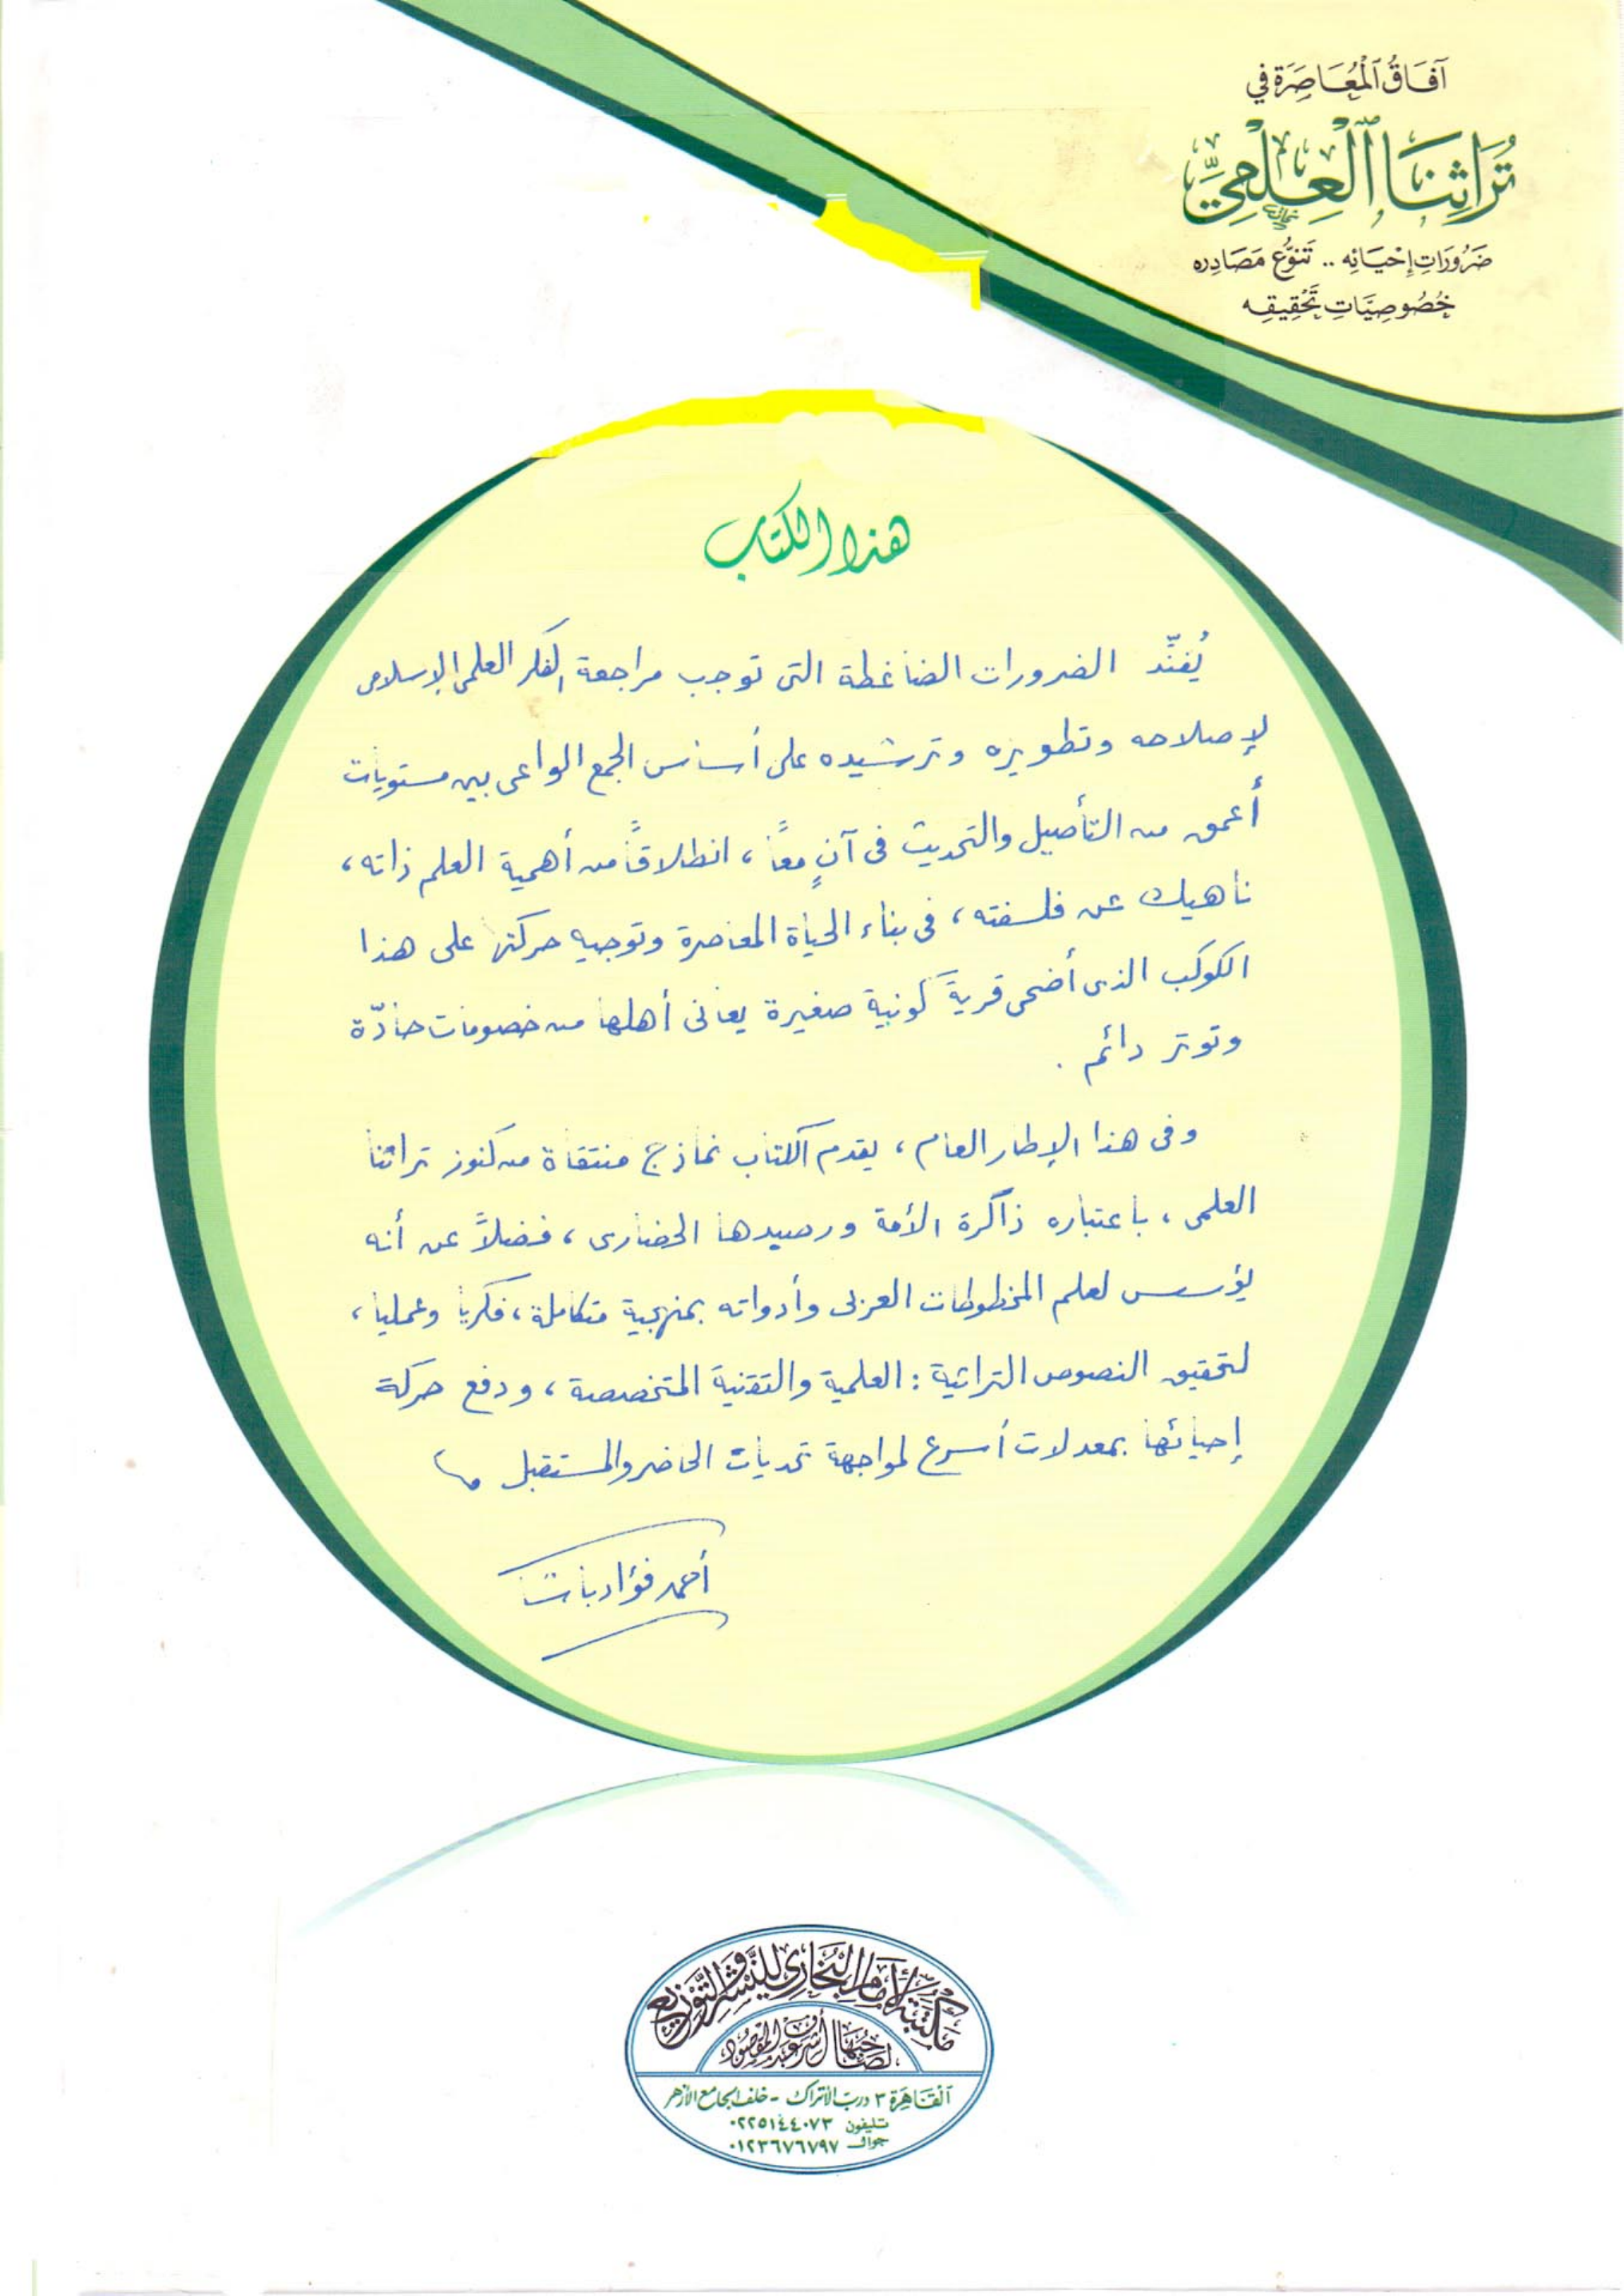 آفَاقُ ٱلْمُعَاصَرَة في
تُرَاثِنَا ٱلْعِلْمِيِّ
ضَرُورَاتِ إِحْيَائِه .. تَنَوُّع مَصَادِره
خُصُوصِيَّاتِ تَحْقِيقِه
هذا الكتاب
يُفنِّد الضرورات الضاغطة التى توجب مراجعة الفكر العلمى الإسلامى
لإصلاحه وتطويره وترشيده على أساس الجمع الواعى بين مستويات
أعمق من التأصيل والتحديث فى آنٍ معًا ، انطلاقًا من أهمية العلم ذاته ،
ناهيك عن فلسفته ، فى بناء الحياة المعاصرة وتوجيه حركتها على هذا
الكوكب الذى أضحى قريةً كونية صغيرة يعانى أهلها من خصومات حادّة
وتوتر دائم .
وفى هذا الإطار العام ، يقدم الكتاب نماذج منتقاة من كنوز تراثنا
العلمى ، باعتباره ذاكرة الأمة ورصيدها الحضارى ، فضلاً عن أنه
يؤسس لعلم المخطوطات العربى وأدواته بمنهجية متكاملة ، فكريا وعمليا ،
لتحقيق النصوص التراثية : العلمية والتقنية المتخصصة ، ودفع حركة
إحيائها بمعدلات أسرع لمواجهة تحديات الحاضر والمستقبل
أحمد فؤاد باشا
مكتبة الإمام البخاري للنشر والتوزيع
لصاحبها أشرف عبد المقصود
القاهرة ٣ درب الأتراك - خلف الجامع الأزهر
تليفون ٠٢٢٥١٤٤٠٧٣
جوال ٠١٢٣٦٧٦٧٩٧